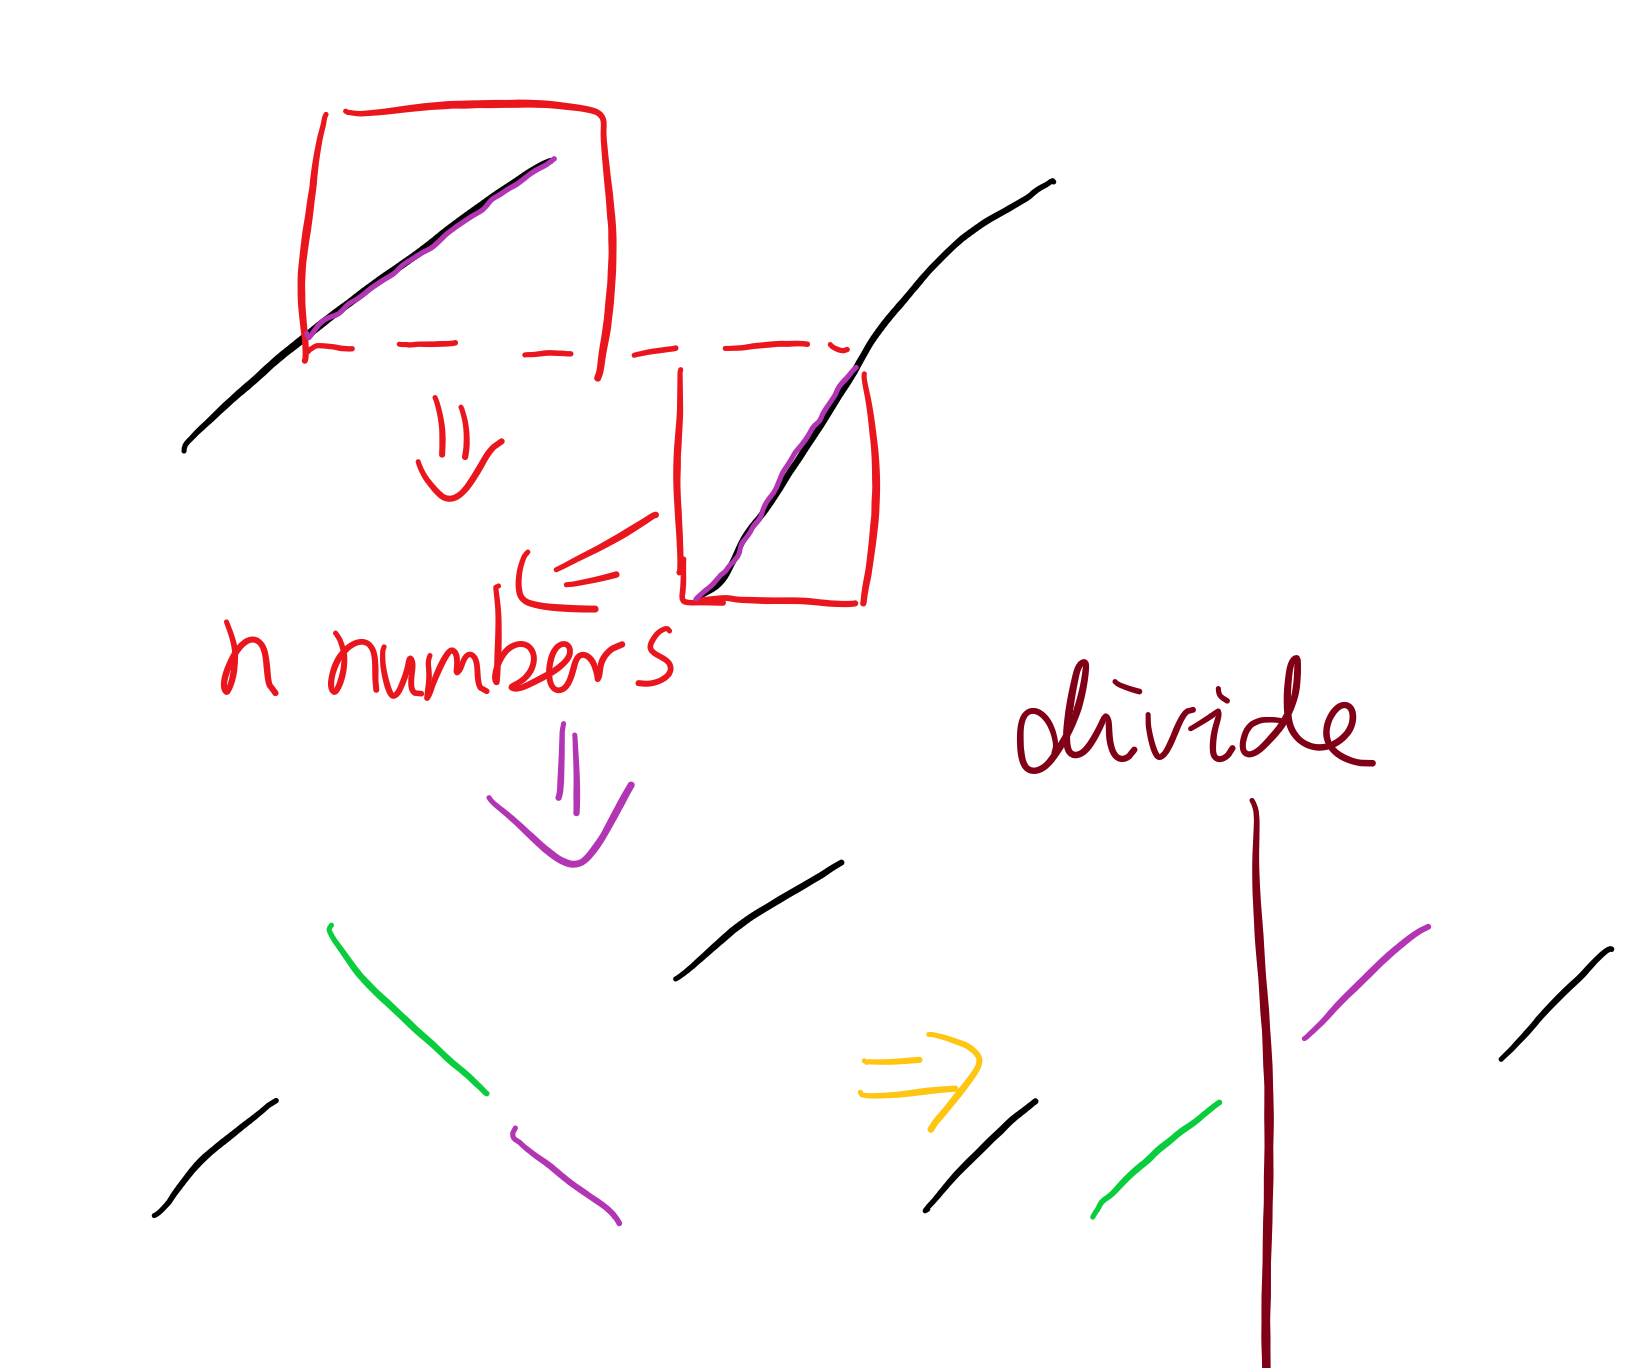 n numbers
divide